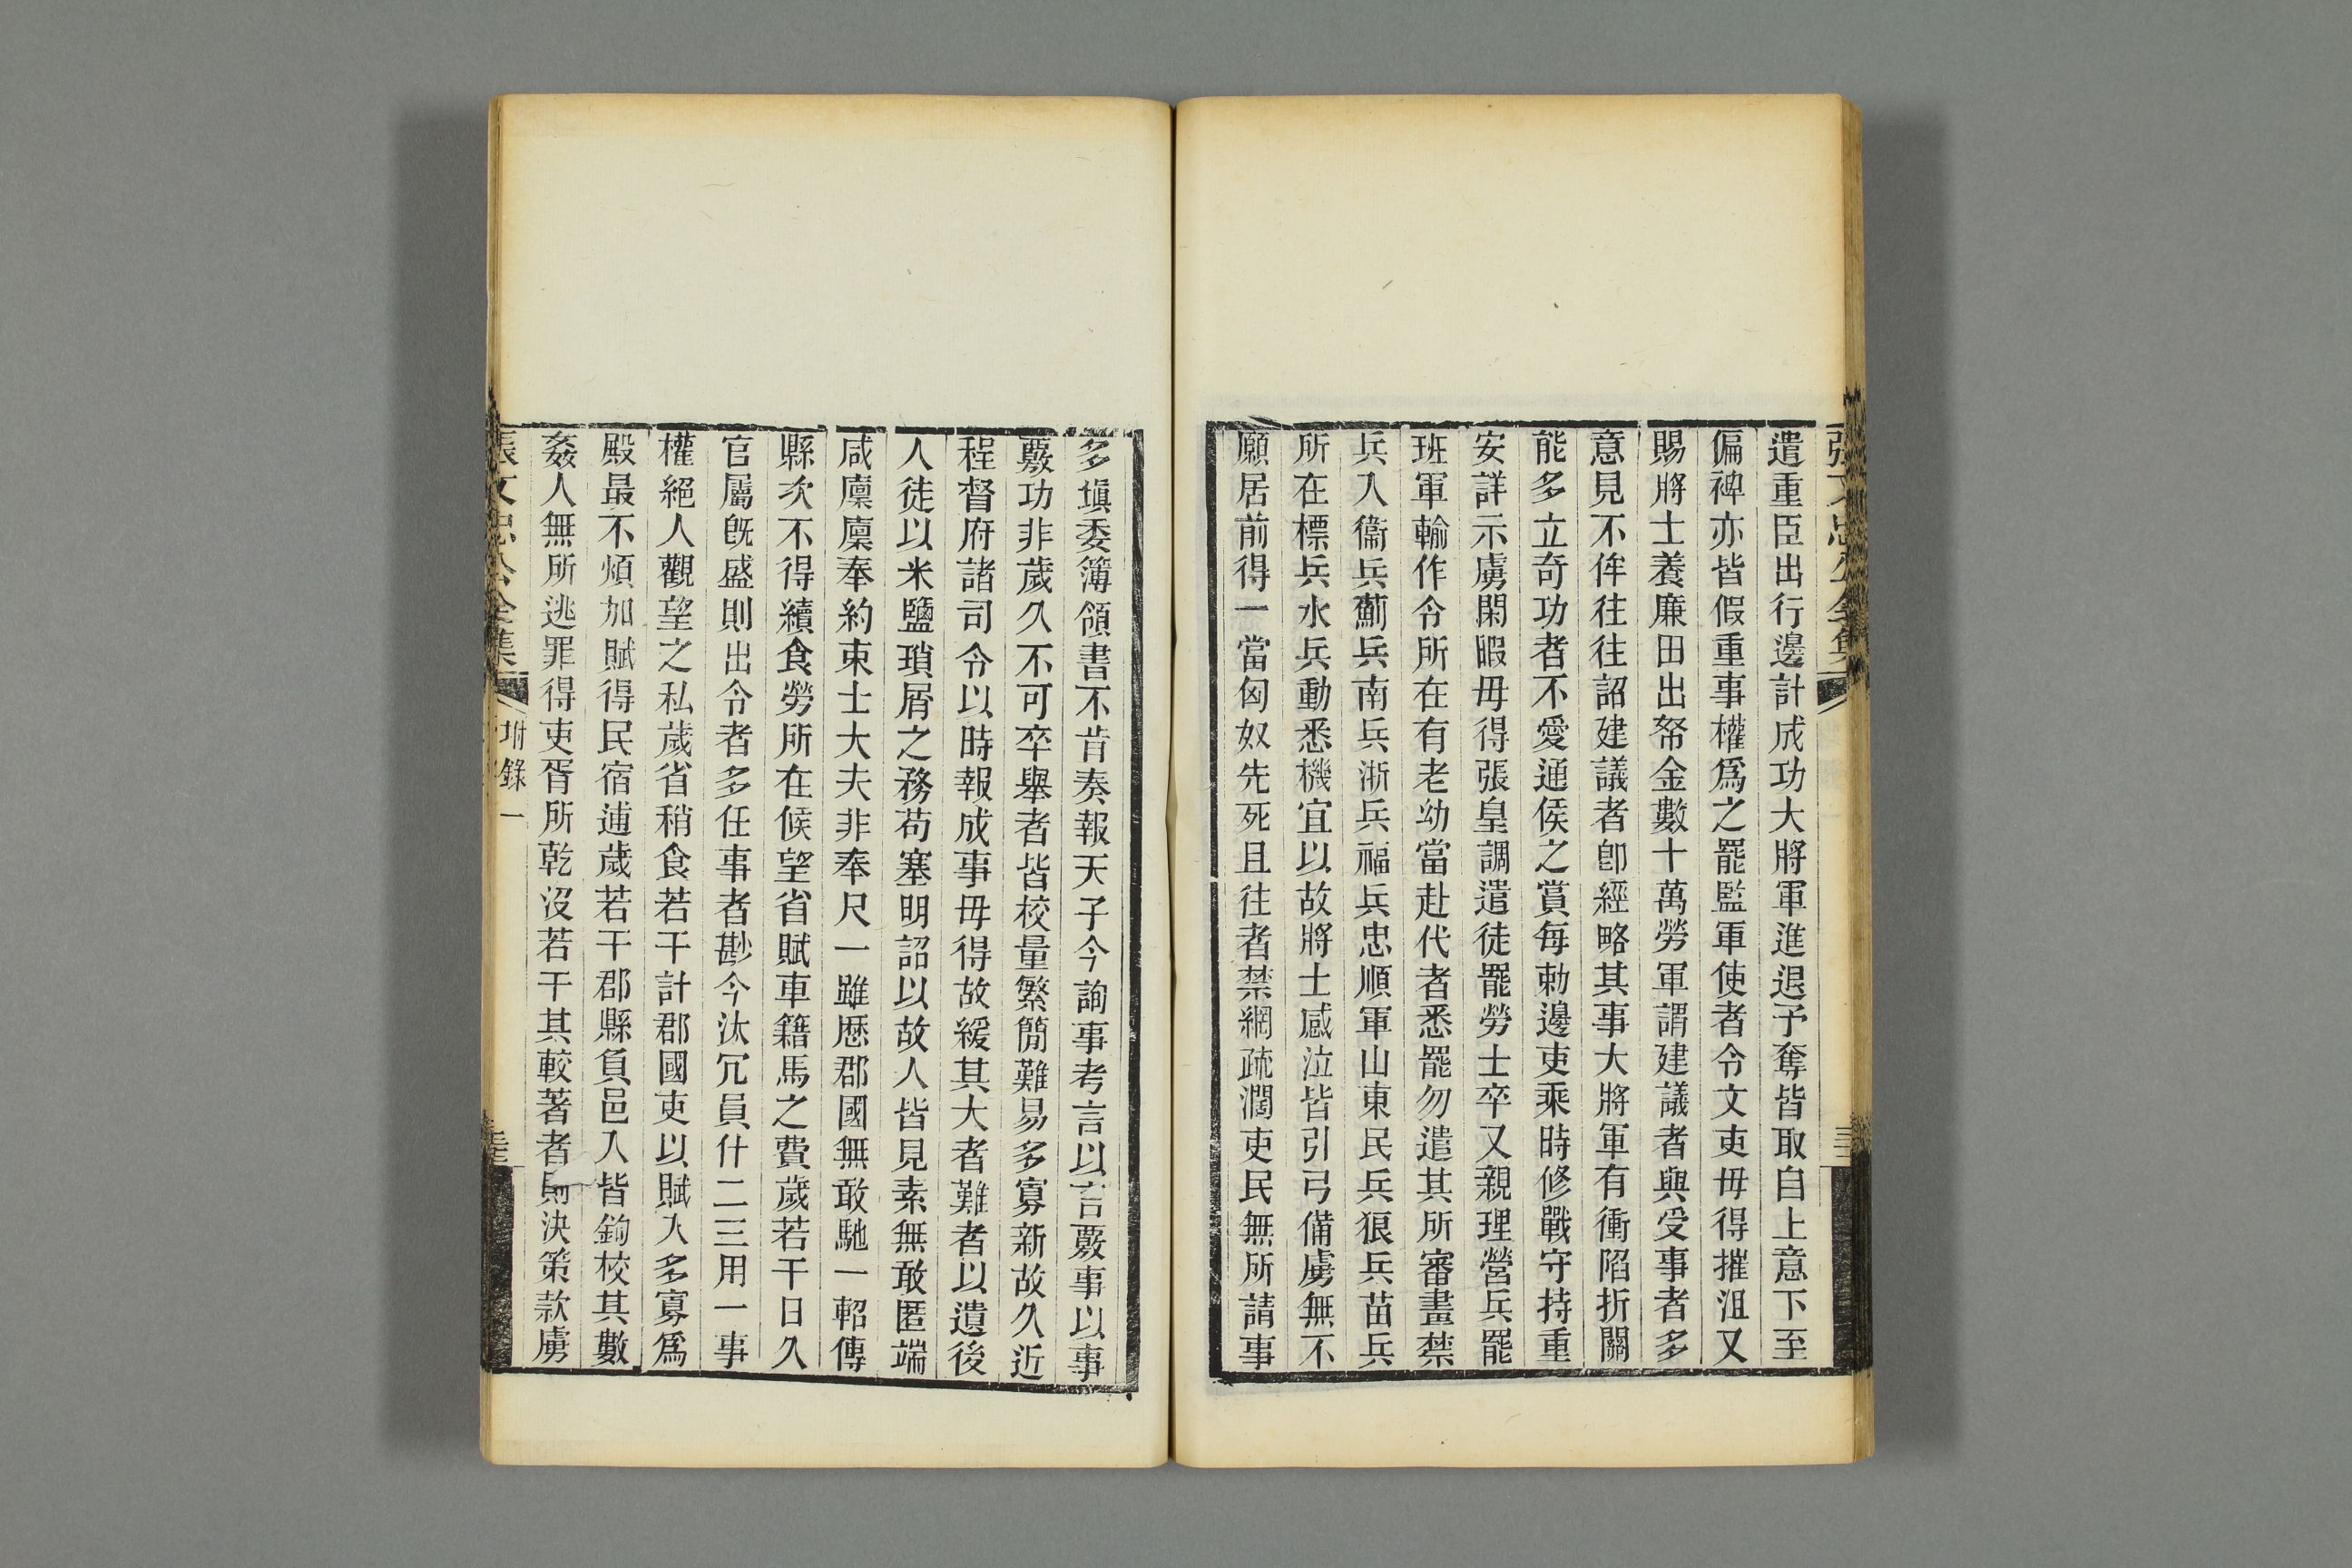 張文忠公全集
遣重臣出行邊計成功大將軍進退予奪皆取自上意下至
偏裨亦皆假重事權爲之罷監軍使者令文吏毋得摧沮又
賜將士養廉田出帑金數十萬勞軍謂建議者與受事者多
意見不侔往往詔建議者卽經略其事大將軍有衝陷折關
能多立奇功者不愛通侯之賞每勅邊吏乘時修戰守持重
安詳示虜閑暇毋得張皇調遣徒罷勞士卒又親理營兵罷
班軍輸作令所在有老幼當赴代者悉罷勿遣其所審畫禁
兵入衞兵薊兵南兵浙兵福兵忠順軍山東民兵狼兵苗兵
所在標兵水兵動悉機宜以故將士感泣皆引弓備虜無不
願居前得一當匈奴先死且往者禁網疏濶吏民無所請事
多塡委簿領書不肯奏報天子今詢事考言以言覈事以事
覈功非歲久不可卒舉者皆校量繁簡難易多寡新故久近
程督府諸司令以時報成事毋得故緩其大者難者以遺後
人徒以米鹽瑣屑之務苟塞明詔以故人皆見素無敢匿端
咸廩廩奉約束士大夫非奉尺一雖歷郡國無敢馳一軺傳
縣次不得續食勞所在候望省賦車籍馬之費歲若干日久
官屬旣盛則出令者多任事者尠今汰冗員什二三用一事
權絕人觀望之私歲省稍食若干計郡國吏以賦入多寡爲
殿最不煩加賦得民宿逋歲若干郡縣負邑入皆鉤校其數
姦人無所逃罪得吏胥所乾沒若干其較著者則決策款虜
張文忠公全集
附錄一